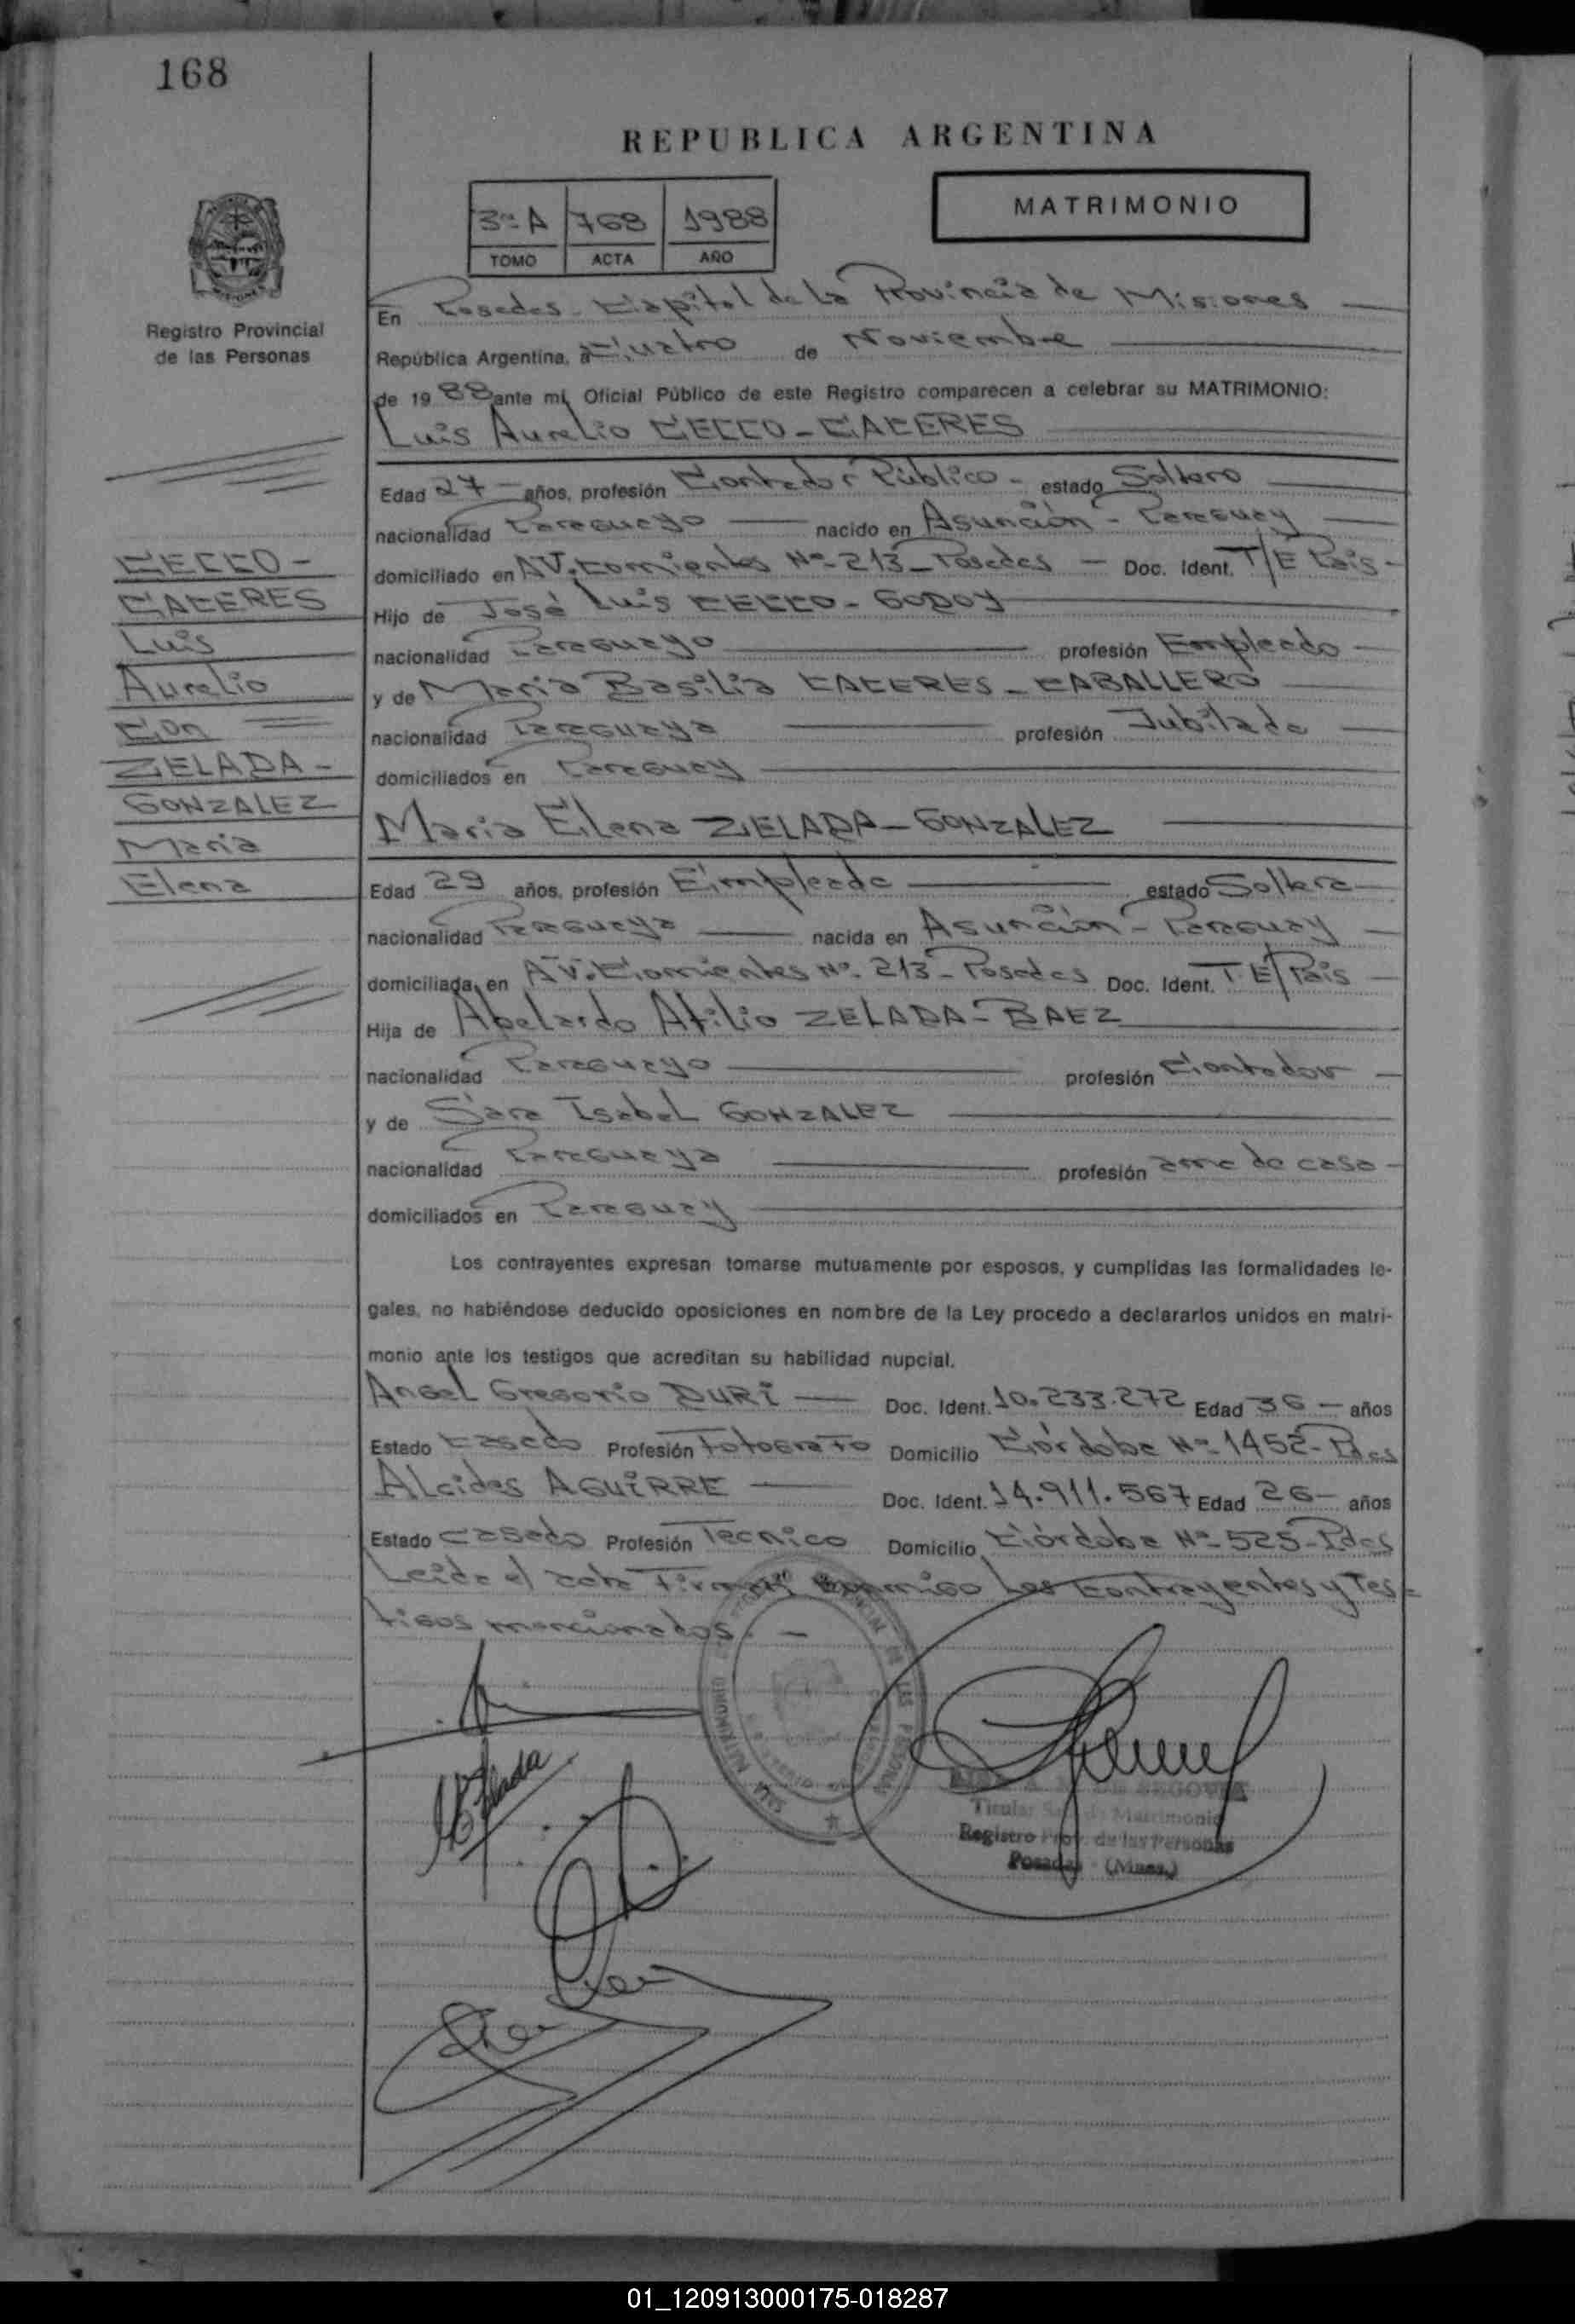 168
REPUBLICA ARGENTINA
3ª A 768 1988
TOMO ACTA AÑO
MATRIMONIO
Registro Provincial
de las Personas
En Posadas - Capital de La Provincia de Misiones
República Argentina, a Cuatro de Noviembre
de 1988 ante mi, Oficial Público de este Registro comparecen a celebrar su MATRIMONIO:
Luis Aurelio CECCO - CACERES
Edad 27 - años, profesión Contador Público - estado Soltero
nacionalidad Paraguayo nacido en Asunción - Paraguay
domiciliado en AV. Corrientes Nº 213 - Posadas - Doc. Ident. T/E País -
Hijo de José Luis CECCO - GODOY
nacionalidad Paraguayo profesión Empleado
y de Maria Basilia CACERES - CABALLERO
nacionalidad Paraguaya profesión Jubilada
domiciliados en Paraguay
CECCO -
CACERES
Luis
Aurelio
Con
ZELADA -
GONZALEZ
Maria
Elena
Maria Elena ZELADA - GONZALEZ
Edad 29 años, profesión Empleada estado Soltera
nacionalidad Paraguaya nacida en Asunción - Paraguay
domiciliada en AV. Corrientes Nº 213 - Posadas Doc. Ident. T.E/País
Hija de Abelardo Atilio ZELADA - BAEZ
nacionalidad Paraguayo profesión Contador
y de Sara Isabel GONZALEZ
nacionalidad Paraguaya profesión ama de casa
domiciliados en Paraguay
Los contrayentes expresan tomarse mutuamente por esposos, y cumplidas las formalidades le-
gales, no habiéndose deducido oposiciones en nombre de la Ley procedo a declararlos unidos en matri-
monio ante los testigos que acreditan su habilidad nupcial.
Angel Gregorio DURI Doc. Ident. 10.233.272 Edad 36 - años
Estado Casado Profesión Fotografo Domicilio Córdoba Nº 1452 - Pdas
Alcides AGUIRRE Doc. Ident. 14.911.567 Edad 26 - años
Estado Casado Profesión Tecnico Domicilio Córdoba Nº 525 - Pdas
Leida el acta Firman conmigo Los Contrayentes y Tes-
tigos mencionados. -
DE SEGOVIA
Titular Sec. de Matrimonio
Registro Prov. de las Personas
Posadas - (Mnes.)
01_120913000175-018287